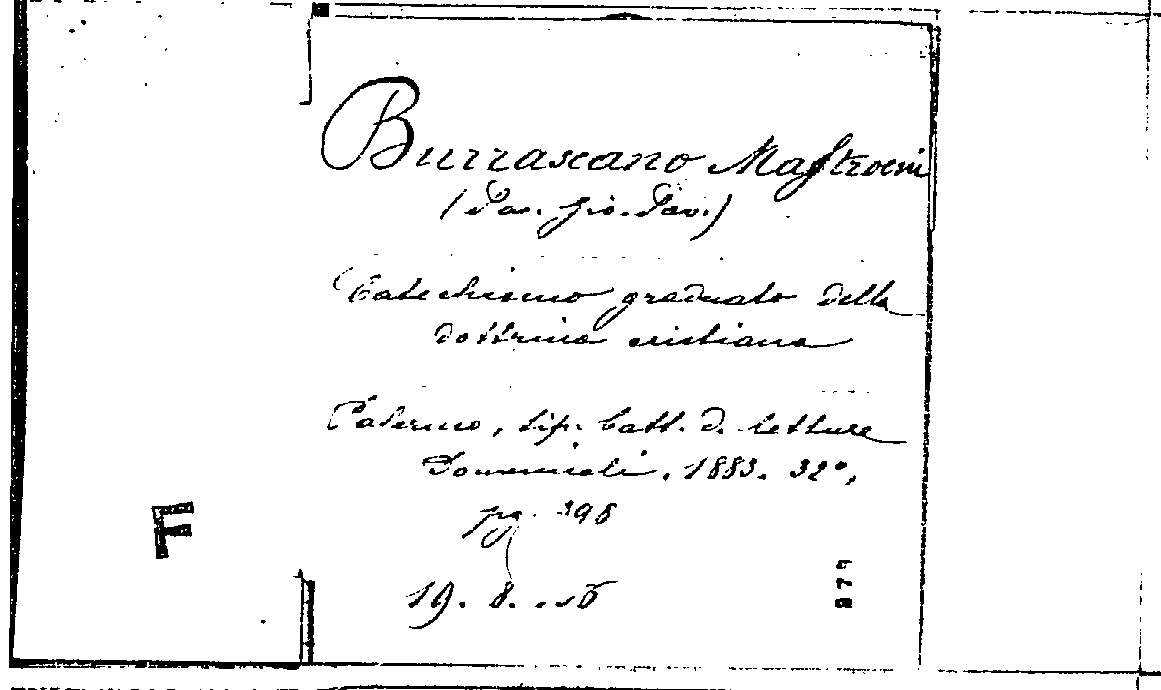 Burrascano Mastroeni
(Sac. Gio. Pao.)
Catechismo graduato della
dottrina cristiana
Palermo, tip. Catt. d. letture
Domenicali, 1883. 32°,
pg. 398
19. 8.
F
877